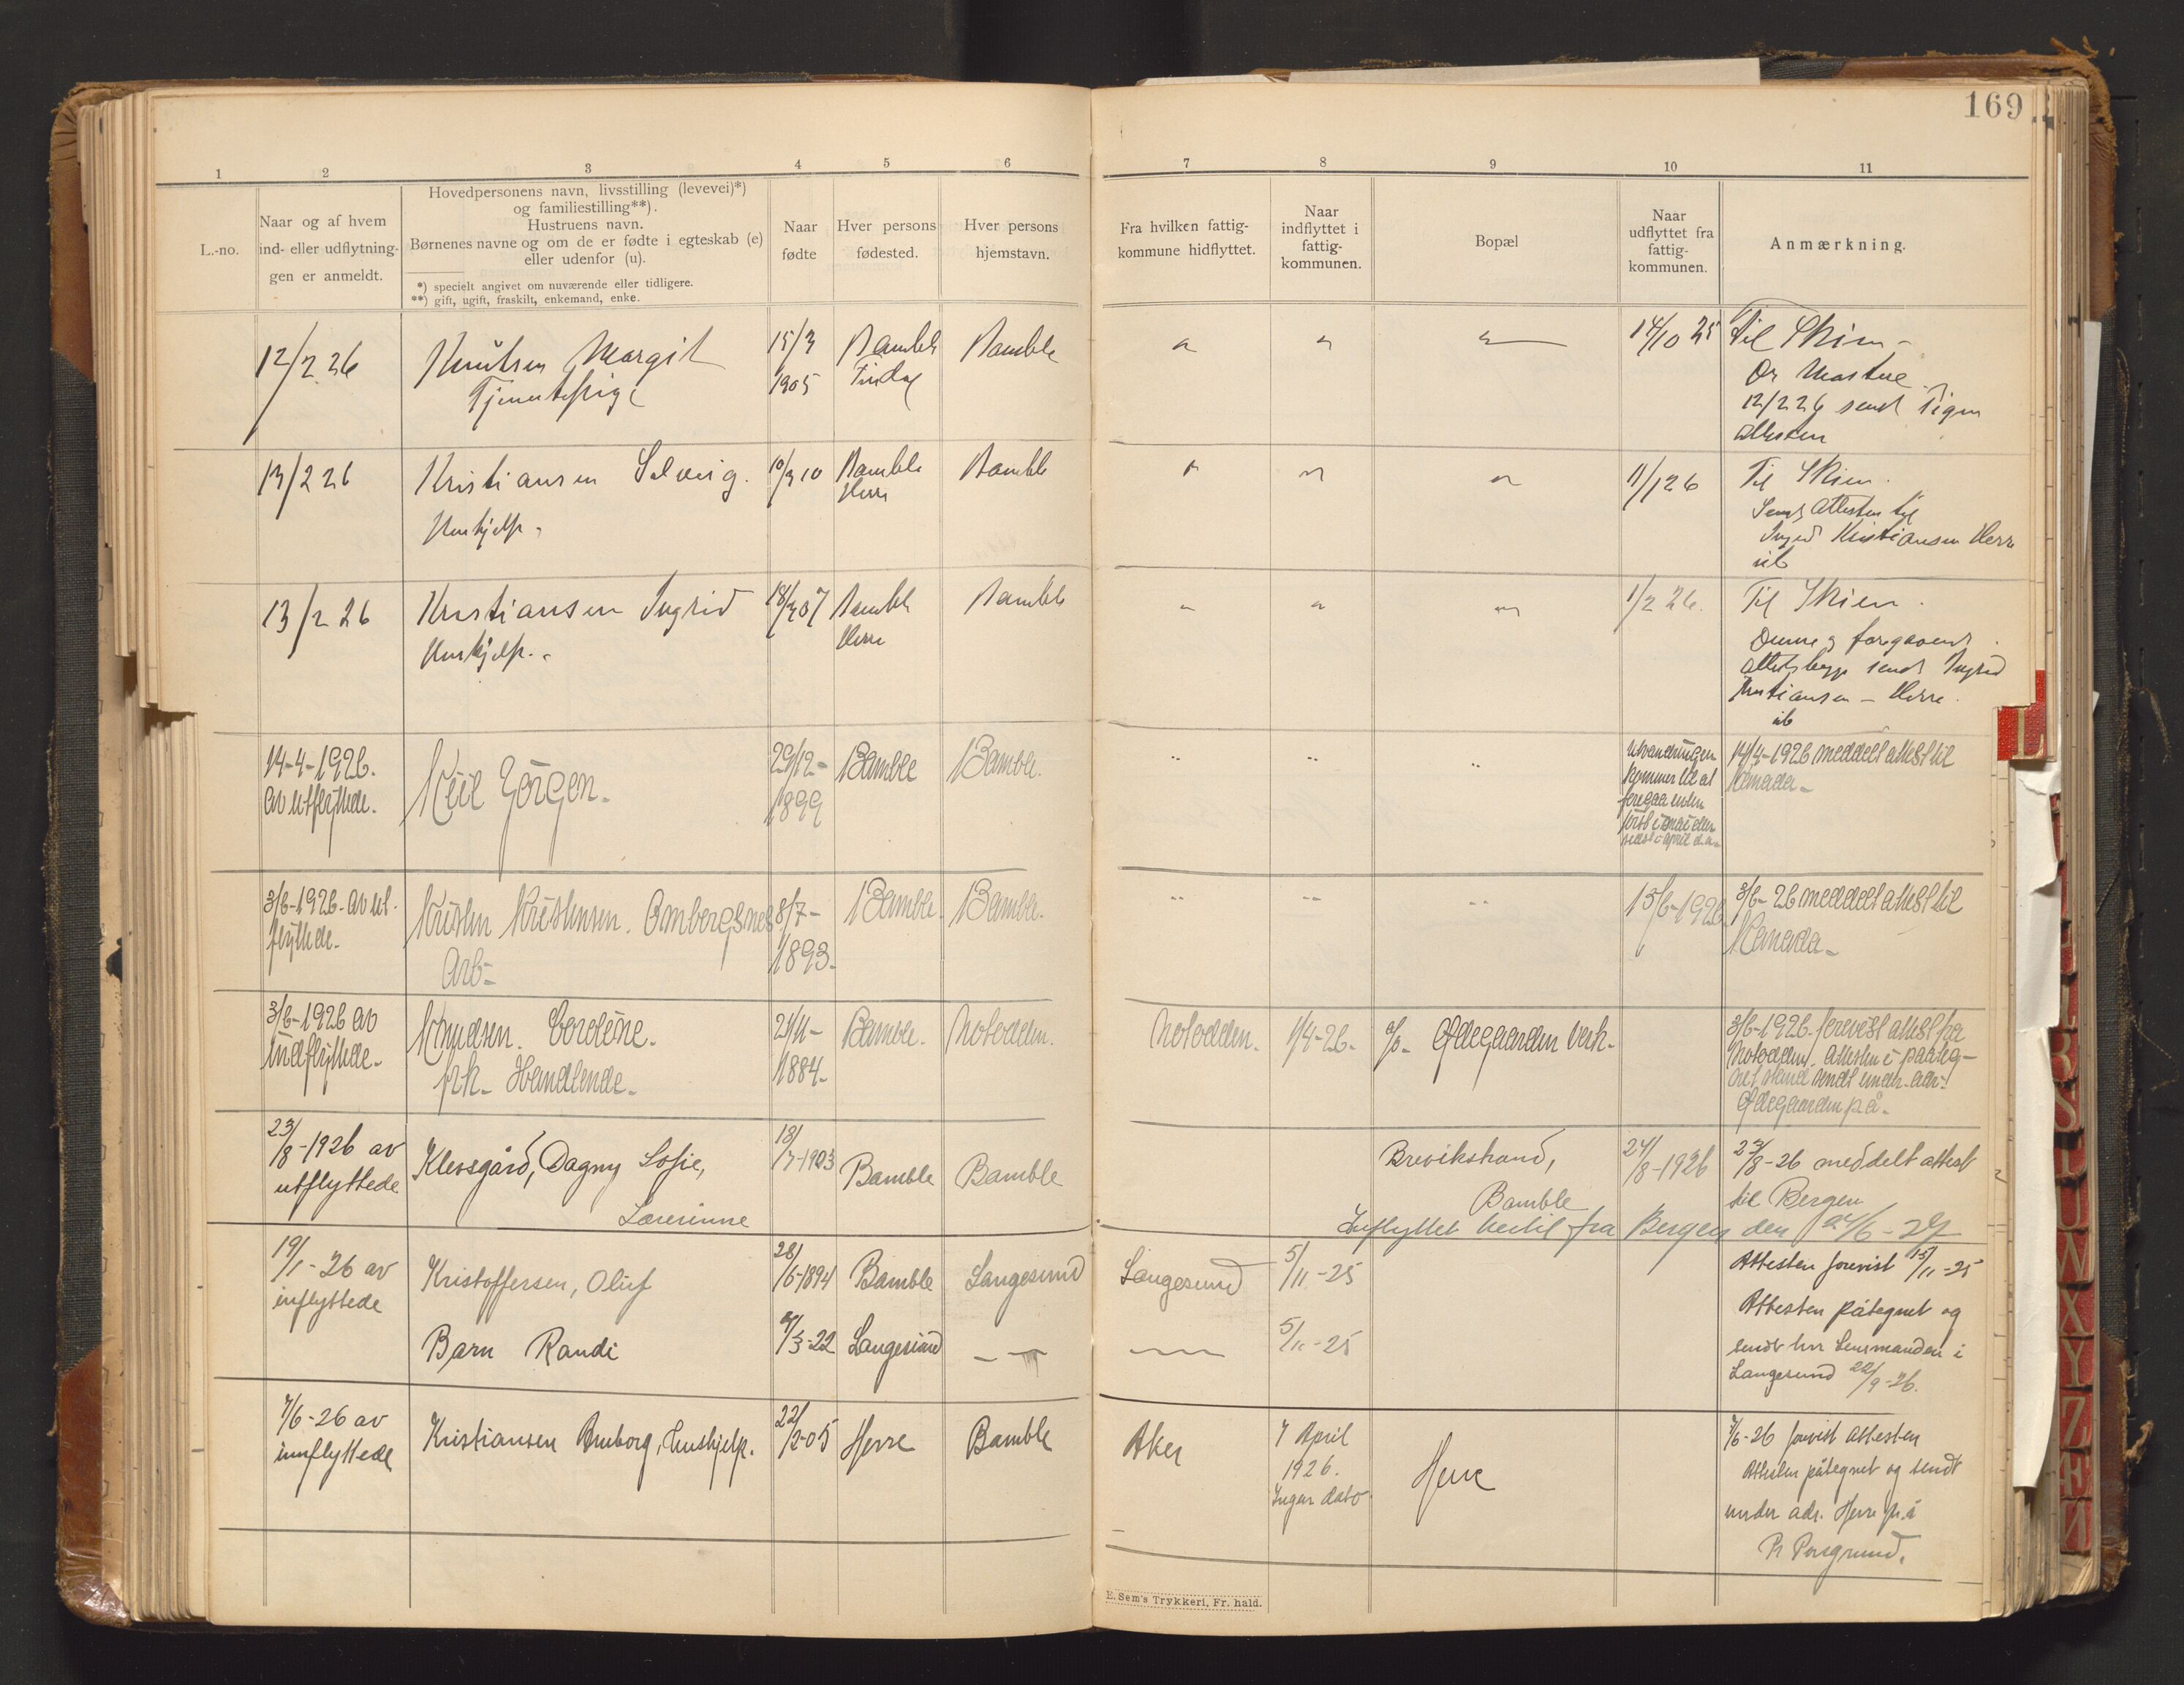 169
1 2 3 4 5 6 7 8 9 10 11
L.-no.
Naar og af hvem
ind- eller udflytnin-
gen er anmeldt.
Hovedpersonens navn, livsstilling (levevei)*)
og familiestilling**).
Hustruens navn.
Børnenes navne og om de er fødte i egteskab (e)
eller udenfor (u).
*) specielt angivet om nuværende eller tidligere.
**) gift, ugift, fraskilt, enkemand, enke.
Naar
fødte
Hver persons
fødested.
Hver persons
hjemstavn.
Fra hvilken fattig-
kommune hidflyttet.
Naar
indflyttet i
fattig-
kommunen.
Bopæl
Naar
udflyttet fra
fattig-
kommunen.
Anmærkning.
12/2 26
Knutsen Margit
Tjenestepige
15/3
1905
Bamble
Bamble
14/10 25
Til Skien -
12/2 26 sendt Pigen
attesten
13/2 26
Kristiansen Solveig.
Hushjelp.
10/3 10
Bamble
Herre
Bamble
11/1 26
Til Skien.
Sendt attesten til
Ingrid Kristiansen Herre
13/2 26
Kristiansen Ingrid
Hushjelp.
18/3 07
Bamble
Herre
Bamble
1/2 26.
Til Skien.
Denne og foregaaende
attest begge sendt Ingrid
Kristiansen - Herre.
14-4-1926.
av utflyttede.
Keil Görgen.
29/12-
1899
Bamble
Bamble.
Utvandringen
kommer til at
foregaa enten
først i mai eller
sidst i april d.a.
14/4-1926 meddelt attest til
Kanada-
3/6-1926- av ut-
flyttede.
Kristen Kristensen. Ombergsnes
Arb-
8/7-
1893-
Bamble.
Bamble.
15/6-1926
3/6-26 meddelt attest til
Kanada-
3/6-1926 av
indflyttede-
Knudsen.
frk- Handlende-
21/11-
1884-
Bamble.
Notodden.
Notodden.
1/4-26-
a/b- Ødegaarden Verk-
3/6-1926- forevist attest fra
Notodden. Attesten i paateg-
net stand sendt under adr:
Ødegaarden på.
23/8-1926 av
utflyttede
Klevsgård, Dagny Sofie,
Lærerinne
18/7-1903
Bamble
Bamble
Brevikstrand,
Bamble
24/8-1926
23/8-26 meddelt attest
til Bergen
Innflyttet hertil fra Bergen den 24/6-27
19/1-26 av
innflyttede
Kristoffersen, Oluf
28/6-1894
Bamble
Langesund
Langesund
5/11-25
Attesten forevist 15/11-25
Attesten påtegnet og
sendt hr. Lensmanden i
Langesund 22/9-26.
Barn Randi
9/3-22
Langesund
5/11-25
7/6-26 av
innflyttede
Kristiansen Anborg, Hushjelp.
22/2-05
Herre
Bamble
Aker
7 April
1926.
Ingen dato
Herre
7/6-26 forevist attesten
Attesten påtegnet og sendt
under adr. Herre p.å
Pr Porsgrund.
E. Sem's Trykkeri, Fr. hald.
L
U
W
X
Y
Z
Æ